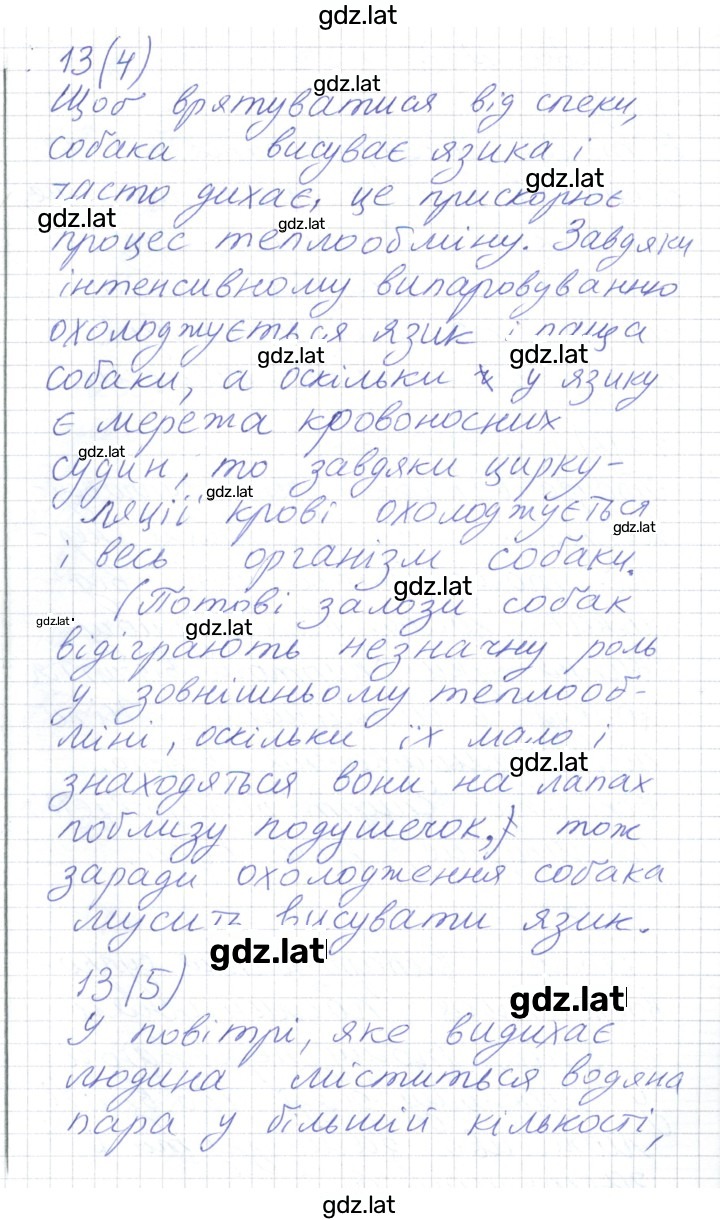 gdz.lat
13(4)
gdz.lat
Щоб врятуватися від спеки,
собака висуває язика і
gdz.lat
часто дихає, це прискорює
gdz.lat
gdz.lat
процес теплообміну. Завдяки
інтенсивному випаровуванню
охолоджується язик і паща
gdz.lat
gdz.lat
собаки, а оскільки у язику
є мережа кровоносних
gdz.lat
судин, то завдяки цирку-
gdz.lat
ляції крові охолоджується
gdz.lat
і весь організм собаки.
gdz.lat
(Потові залози собак
gdz.lat
gdz.lat
відіграють незначну роль
у зовнішньому теплооб-
міні, оскільки їх мало і
gdz.lat
знаходяться вони на лапах
поблизу подушечок,) тож
заради охолодження собака
мусить висувати язик.
gdz.lat
13(5)
gdz.lat
У повітрі, яке видихає
людина міститься водяна
пара у більшій кількості,
gdz.lat